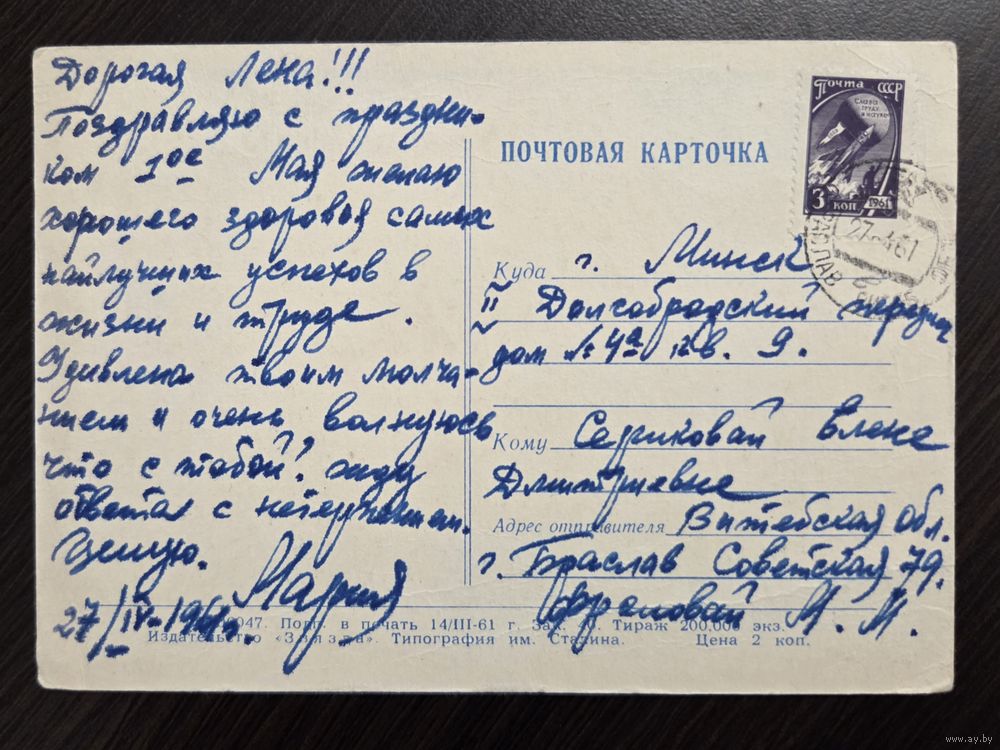 Дорогая Лена!!!
Поздравляю с праздни-
ком 1ое Мая желаю
хорошего здоровья самых
наилучших успехов в
жизни и труде.
Удивлена твоим молча-
нием и очень волнуюсь
что с тобой? жду
ответа с нетерпением.
Целую.
Мария
27/IV-1961г.
ПОЧТОВАЯ КАРТОЧКА
Почта СССР
СЛАВА
ТРУДУ
И НАУКЕ
3 КОП 1961
27-4 61
Куда г. Минск
II Долгобродский
дом № 4а кв. 9.
Кому Сериковой Елене
Дмитриевне
Адрес отправителя Витебская обл.
г. Браслав Советская 79.
М. М.
Подп. в печать 14/III-61 г. Тираж 200,000 экз.
Издательство «Звязда». Типография им. Сталина. Цена 2 коп.
www.ay.by